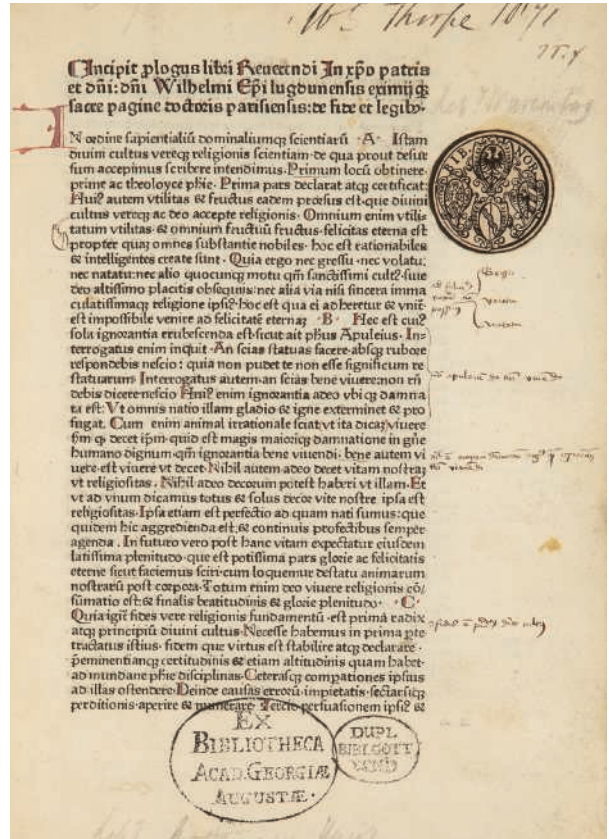 Wm. Thorpe 1871
Incipit plogus libri Reuerendi In xpo patris
et dni: dni Wilhelmi Epi lugdunensis eximijq
sacre pagine doctoris parisiensis: de fide et legib9.
IN ordine sapientialiũ dominaliumq scientiarũ · A · Istam
diuini cultus vereq religionis scientiam de qua prout desur
sum accepimus scribere intendimus. Primum locũ obtinere.
prime ac theoloyce phie. Prima pars declarat atq certificat:
Hui9 autem vtilitas & fructus eadem prorsus est que diuini
cultus vereq ac deo accepte religionis. Omnium enim vtili
tatum vtilitas & omnium fructuũ fructus felicitas eterna est
propter quaȝ omnes substantie nobiles hoc est rationabiles
& intelligentes create sunt. Quia ergo nec gressu nec volatu:
nec natatu: nec alio quocunq motu qm̃ sanctissimi cult9 siue
deo altissimo placitis obsequijs: nec alia via nisi sincera imma
culatissimaq religione ipsi9 hoc est qua ei adheretur & vnit
est impossibile venire ad felicitatẽ eternaȝ · B · Hec est cui9
sola ignorantia erubescenda est sicut ait phus Apuleius. In-
terrogatus enim inquit. An scias statuas facere absq rubore
respondebis nescio: quia non pudet te non esse significum re
statuarum Interrogatus autem an scias bene viuere: non rñ
debis dicere nescio Hui9 enim ignorantia adeo vbiq damna
ta est: Vt omnis natio illam gladio & igne exterminet & pro
fugat. Cum enim animal irrationale sciat vt ita dicaȝ viuere
sm̃ q decet ipm̃ quid est magis maiorisq damnatione in gñe
humano dignum qm̃ ignorantia bene viuendi. bene autem vi
uere est viuere vt decet. Nihil autem adeo decet vitam nostraȝ
vt religiositas. Nihil adeo decorum potest haberi vt illam. Et
vt ad vnum dicamus totus & solus decor vite nostre ipsa est
religiositas. Ipsa etiam est perfectio ad quam nati sumus: que
quidem hic aggredienda est. & continuis profectibus semper
agenda. In futuro vero post hanc vitam expectatur eiusdem
latissima plenitudo que est potissima pars glorie ac felicitatis
eterne sicut faciemus sciri cum loquemur de statu animarum
nostrarũ post corpora. Totum enim deo viuere religionis cõ/
sumatio est & finalis beatitudinis & glorie plenitudo · C ·
Quia igit fides vere religionis fundamentũ est prima radix
atq principiũ diuini cultus Necesse habemus in prima pte
tractatus istius fidem que virtus est stabilire atq declarare
preminentiamq certitudinis & etiam altitudinis quam habet
ad mundane phie disciplinas. Ceterasq compationes ipsius
ad illas ostendere. Deinde causas errorũ impietatis sectarũq
perditionis aperire & numerare. Tercio persuasionem ipsi9 &
BIB NOR
EX
BIBLIOTHECA
ACAD. GEORGIÆ
AUGUSTÆ.
DUPL
BIBL GOTT